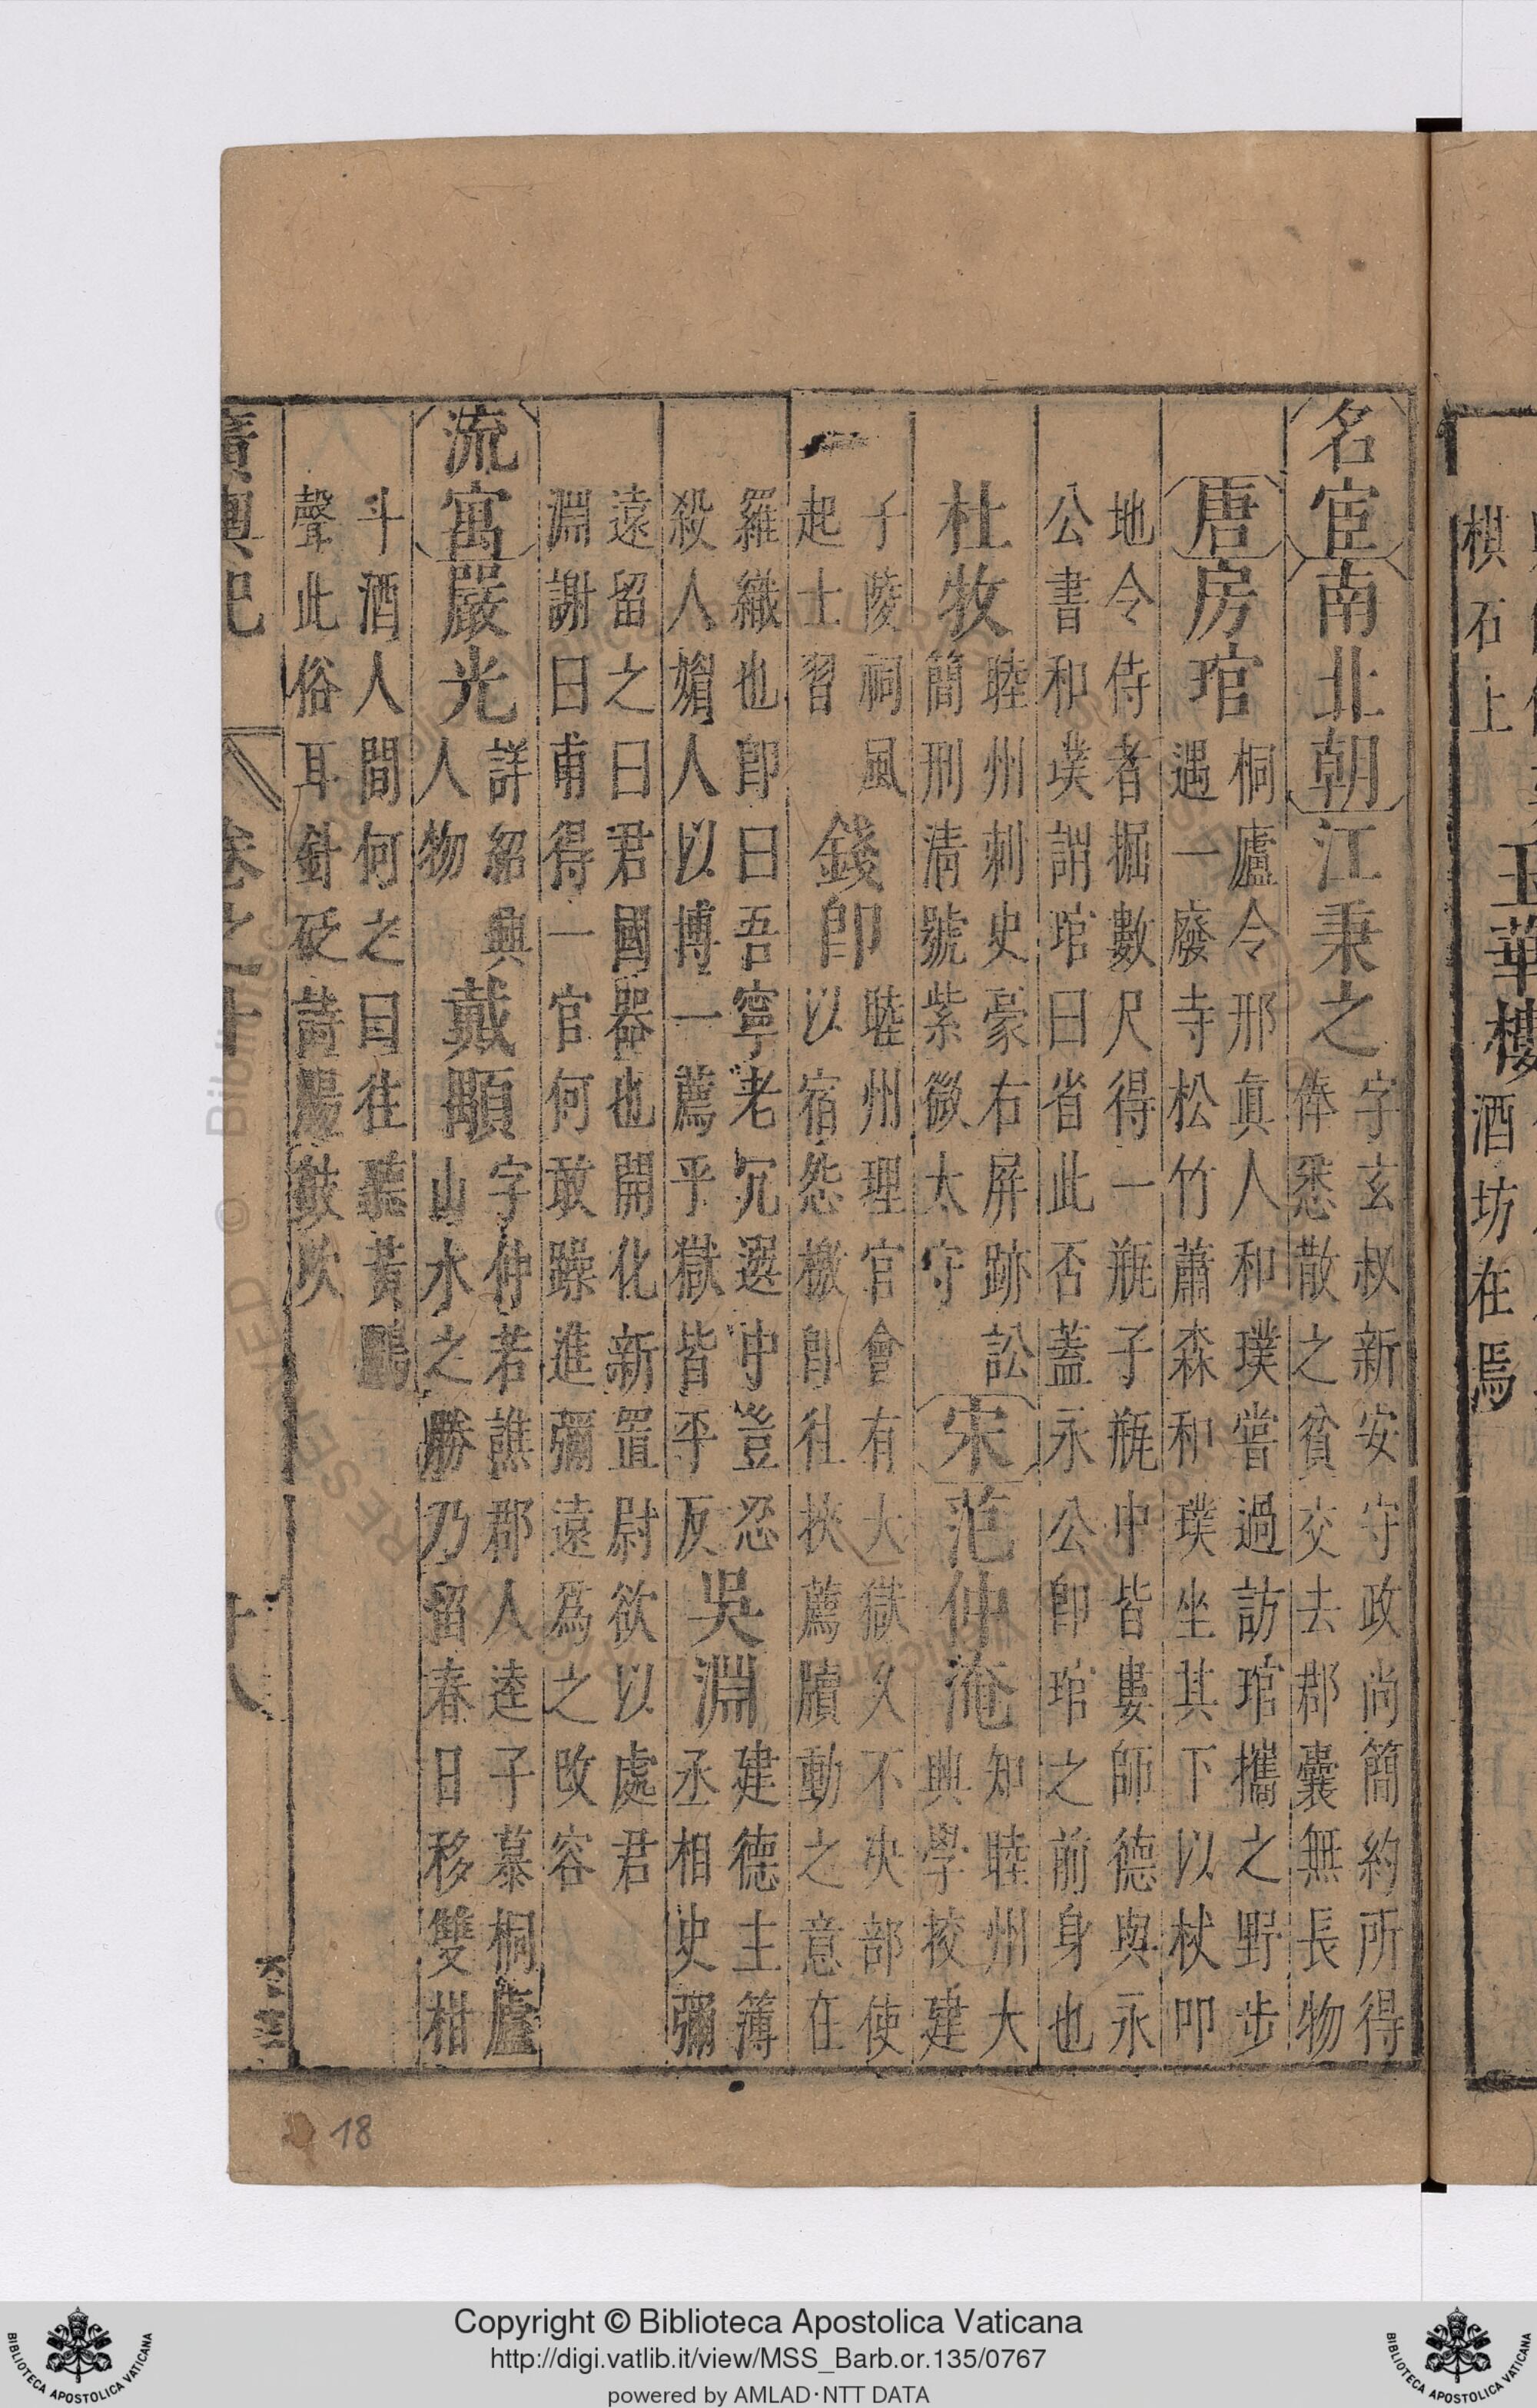 棋石上
玉華樓
酒坊在焉
名宦南北朝江秉之字玄叔新安守政尚簡約所得
俸悉散之貧交去郡囊無長物
唐房琯桐廬令邢眞人和璞嘗過訪琯攜之野步
遇一廢寺松竹蕭森和璞坐其下以杖叩
地令侍者掘數尺得一瓶子瓶中皆婁師德與永
公書和璞謂琯曰省此否蓋永公卽琯之前身也
杜牧睦州刺史豪右屏跡訟
簡刑清號紫微太守
宋范仲淹知睦州大
興學挍建
子陵祠風
起士習
錢卽睦州理官會有大獄久不决部使
以宿怨檄卽徃挾薦牘動之意在
羅織也卽曰吾寧老冗選中豈忍
殺人媚人以博一薦乎獄皆平反
吳淵建德主簿
丞相史彌
遠留之曰君國器也開化新置尉欲以處君
淵謝曰甫得一官何敢躁進彌遠爲之改容
流寓嚴光詳紹興
人物
戴顒字仲若譙郡人逵子慕桐廬
山水之勝乃留春日移雙柑
斗酒人間何之曰往聽黃鸝
聲此俗耳針砭詩腸鼓吹
廣輿記
卷之十
十八
18
Copyright © Biblioteca Apostolica Vaticana
http://digi.vatlib.it/view/MSS_Barb.or.135/0767
powered by AMLAD·NTT DATA
BIBLIOTECA APOSTOLICA VATICANA
BIBLIOTECA APOSTOLICA VATICANA